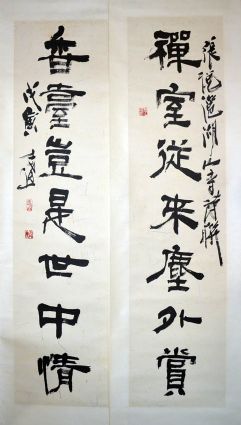 張說㴑湖山寺詩聯
禪室從來塵外賞
香臺豈是世中情
戊寅